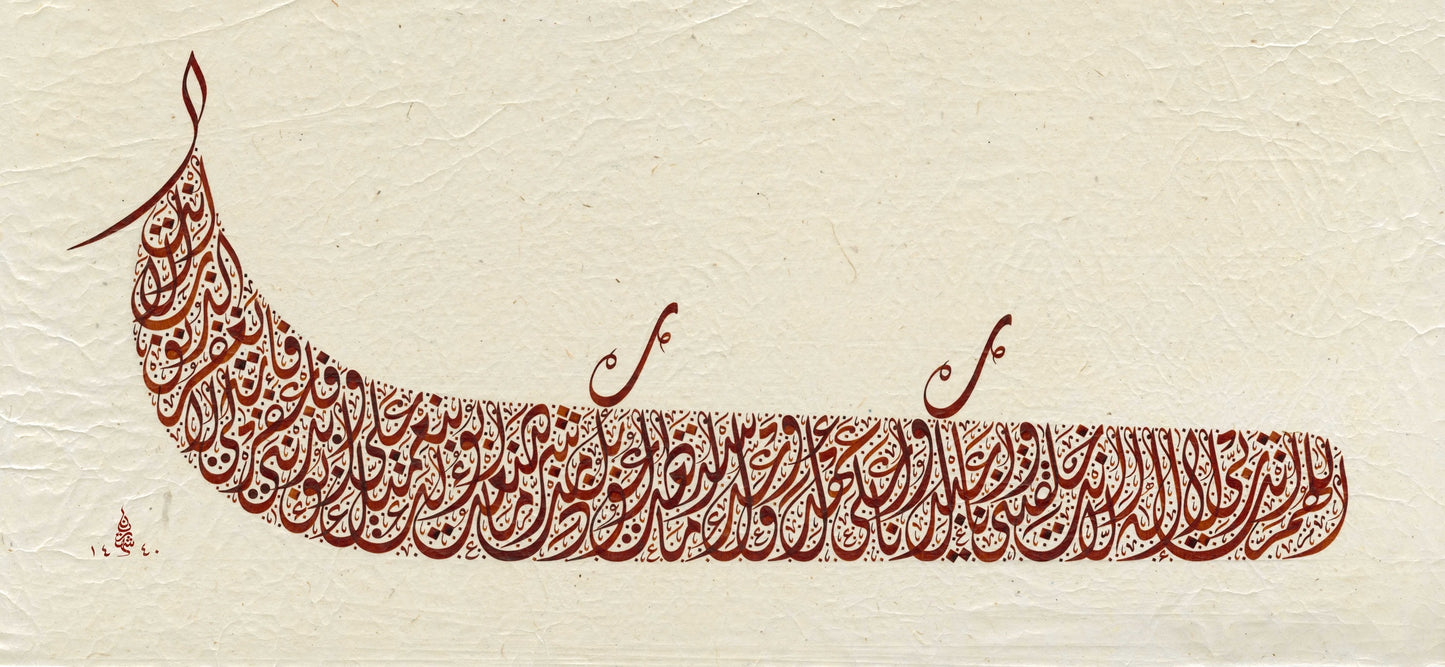 اللهم أنت ربي لا إله إلا أنت خلقتني وأنا عبدك وأنا على عهدك ووعدك ما استطعت أعوذ بك من شر ما صنعت أبوء لك بنعمتك علي وأبوء بذنبي فاغفر لي فإنه لا يغفر الذنوب إلا أنت
١٤٤٠